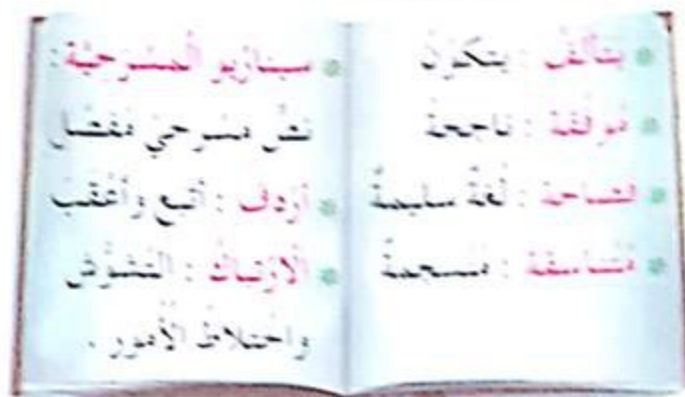 يتألف : يتكون
موفقة : ناجحة
فصاحة : لغة سليمة
متناسقة : منسجمة
سيناريو المسرحية :
نص مسرحي مفصل
أردف : أتبع وأعقب
الارتباك : التشوش
واختلاط الأمور .